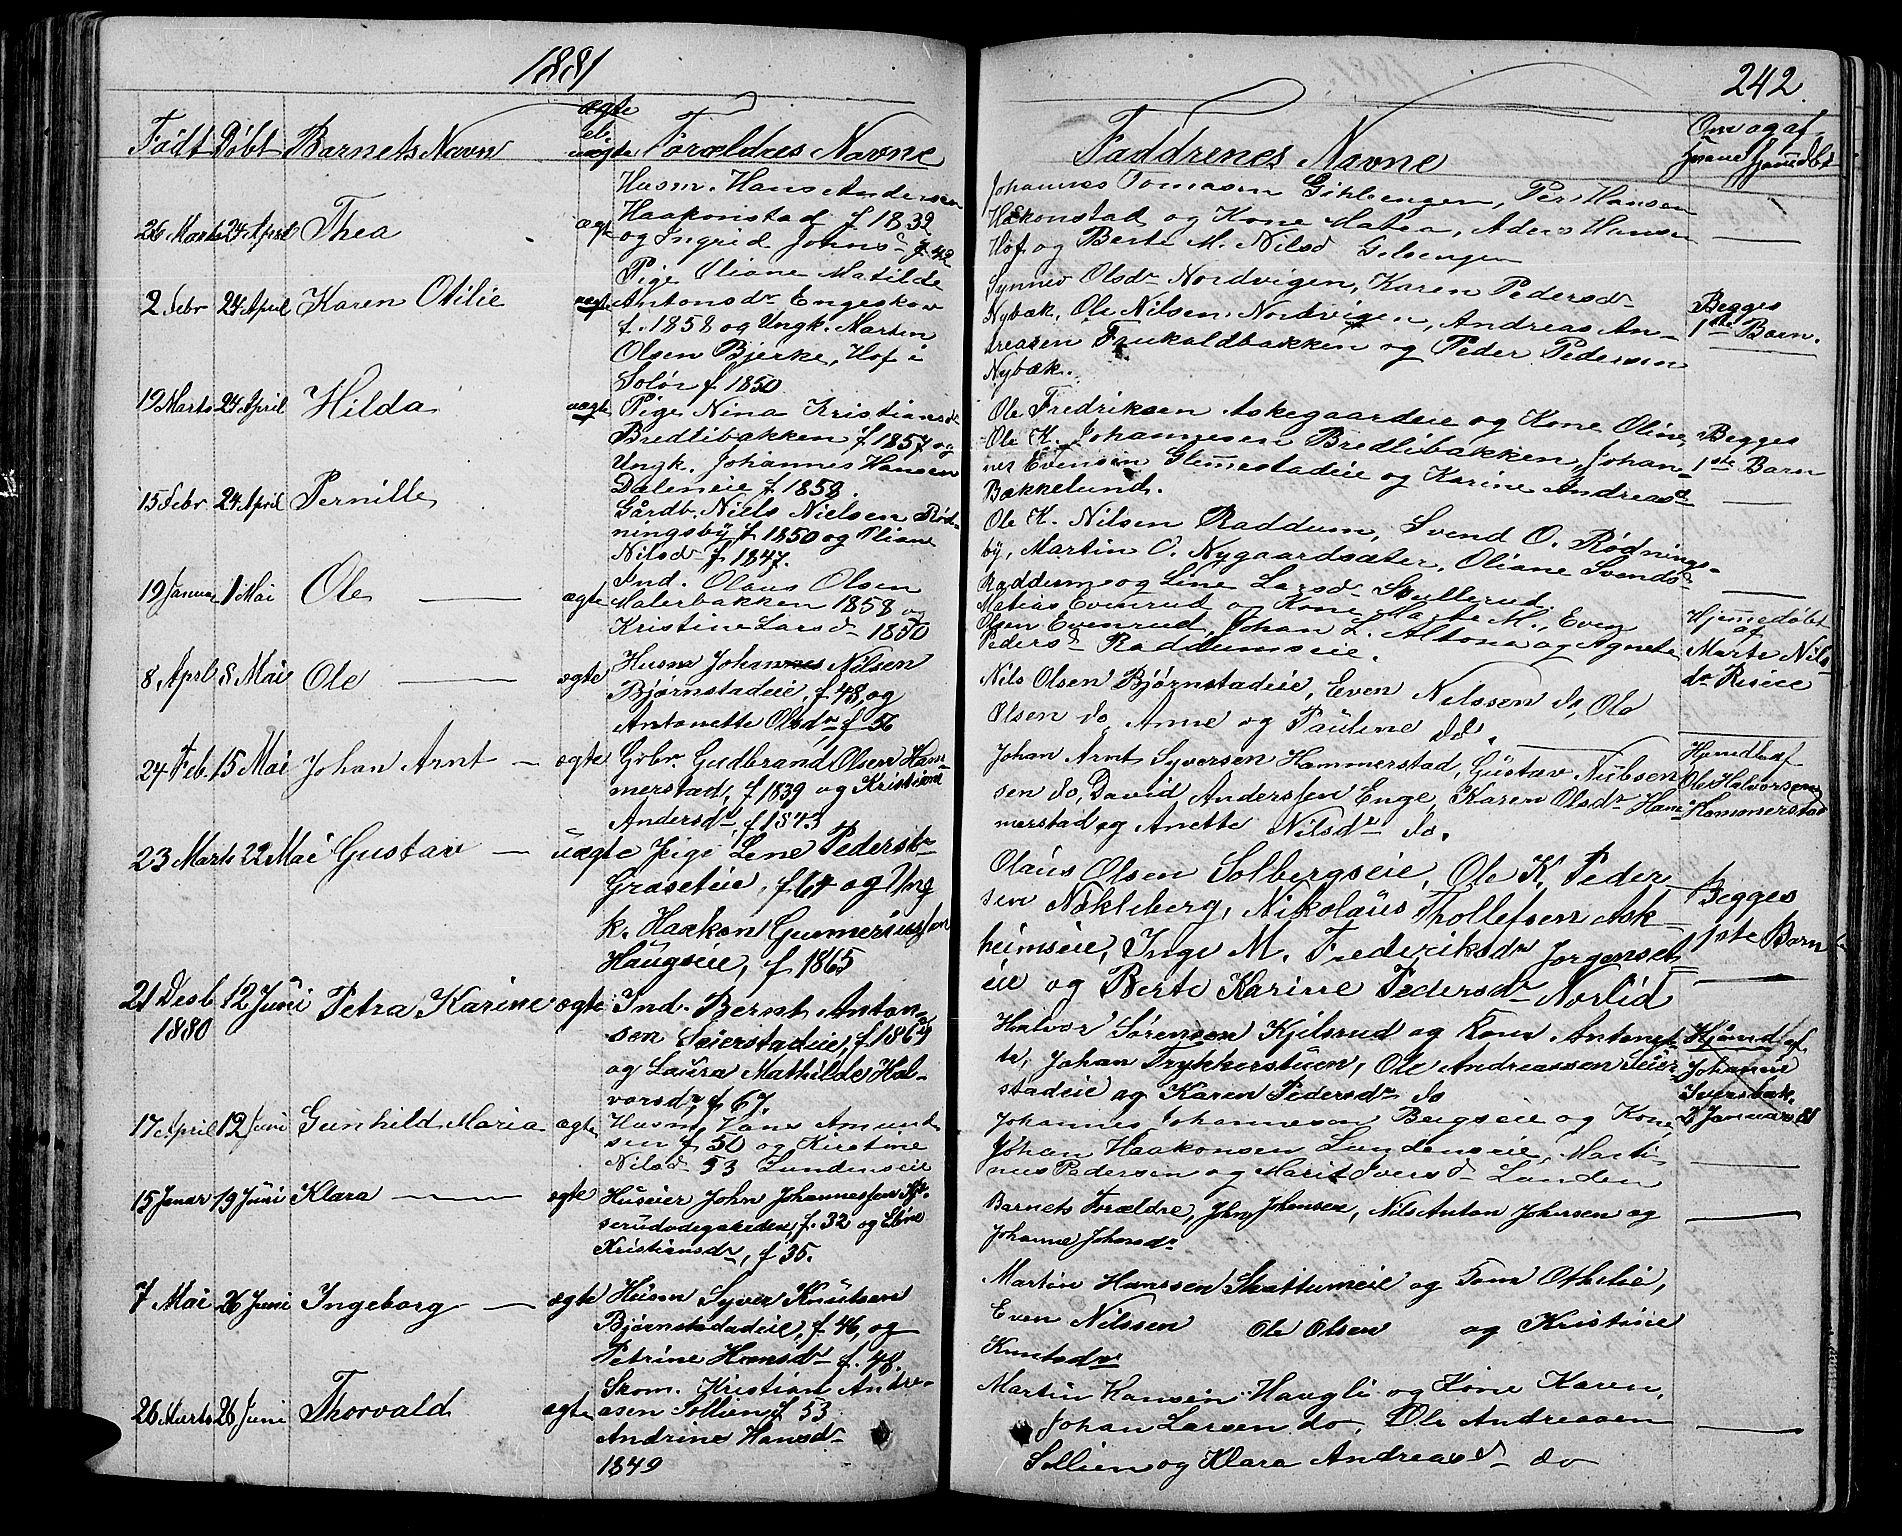 1881
242.
Født Døbt Barnets Navn
ægte
el.
uægte
Forældres Navne
Faddrenes Navne
Om og af
hjemmedøbt
26 Marts 24 April Thea ægte
Husm. Hans Andersen
Haakonstad f 1832
og Ingrid Johnsd f 42
Johannes Tomasen Gihlengen, Per Hansen
Haakonstad og Kone Matea, Aders Hansen
Hof og Berte M. Nilsd Gilsengen
2 Febr 24 April Karen Otilie uægte
Pige Oliane Matilde
Antonsdr Engeskov
f. 1858 og Ungk. Martin
Olsen Bjerke, Hof i
Solør f 1850
Synnev Olsdr Nordvigen, Karen Pedersdr
Nybak, Ole Nilsen Nordvigen, Andreas An-
dreasen Frukaldbakken og Peder Pedersen
Nybæk.
Begges
1ste Barn.
19 Marts 24 April Hilda uægte
Pige Nina Kristiansdr
Bredlibakken f 1857 og
Ungk. Johannes Hansen
Daleneie f 1858.
Ole Fredriksen Askegaardeie og Kone Oline,
Ole K. Johannesen Bredlibakken, Johan-
nes Evensen Glemestadeie og Karine Andreasd
Bækkelund.
Begges
1ste Barn
15 Febr 24 April Pernille
Gårdb. Niels Nielsen Rød-
ningsby f 1850 og Oliane
Nilsd f 1847.
Ole K. Nilsen Raddum, Svend O. Rødnings-
by, Martin O. Nygaardsæter, Oliane Svendsd
Raddum og Line Larsd Skullerud
19 Januar 1 Mai Ole ægte
Ind. Olaus Olsen
Malerbakken 1858 og
Kristine Larsd 1850
Matias Evenrud og Kone Marte M., Even
Olsen Evenrud, Johan L. Altona og Agnete
Pedersd Raddumseie.
Hjemmedøbt
af
Marte Nils-
dr Riseie
8 Aprl 8 Mai Ole ægte
Husm Johannes Nilsen
Bjørnstadeie, f 48, og
Antonette Olsdr, f 56
Nils Olsen Bjørnstadeie, Even Nilssen do, Ole
Olsen do, Anne og Pauline do.
24 Feb. 15 Mai Johan Arnt ægte
Grbr. Gudbrand Olsen Ham-
merstad, f 1839 og Kristiane
Andersdr, f 1843
Johan Arnt Syversen Hammerstad, Gustav Nilsen
sen do, David Anderssen Enge, Karen Olsdr Ham-
merstad og Anette Nilsdr do.
Hjemdbt af
Ole Halvorsen
Hammerstad
23 Marts 22 Mai Gustav uægte
Pige Lene Pedersdr
Graseteie, f 64 og Ung
k. Haakon Gunneriussen
Haugseie, f 1865
Olaus Olsen Solbergseie, Ole K. Peder-
sen Nøkleberg, Nikolaus Thollefsen Ask-
heimseie, Inge M. Frederiksdr Jorgenset
eie og Berte Karine Pedersdr Norlid
Begges
1ste Barn
21 Desb 12 Juni Petra Karine ægte
1880
Ind. Bernt Anton-
sen Seierstadeie, f. 1864
og Laura Mathilde Hal-
vorsdr, f 67.
Halvor Sørensen Kjilsrud og Kone Antonet-
te, Johan Trykkerstuen, Ole Andreassen Seier-
stadeie og Karen Pedersdr do
Hjemd. af
Johanne
Iversbak.
2 Januar 81
17 April 12 Juni Gunhild Maria ægte
Husm. Hans Amund
sen f 50 og Kirstine
Nilsd 53 Lundenseie
Johannes Johannesen Bergseie og Kone,
Johan Haakonsen Lundenseie, Marti-
nus Pedersen og Marit Iversd Lunden
15 Januar 19 Juni Klara ægte
Huseier John Johannessen Kjel-
serudodegaarden, f. 32 og Eline
Kristiansdr, f 35.
Barnets Forældre, John Johnsen, Nils Anton Johnsen og
Johanne Johnsdr
7 Mai 26 Juni Ingeborg ægte
Husm Syver Knutsen
Bjørnstadeie, f 46, og
Petrine Hansdr f. 48.
Martin Hanssen Skattumeie og Kone Othelie,
Even Nilssen Ole Olsen og Kristine
Knutsdr
26 Marts 26 Juni Thorvald ægte
Skom. Kristian Andre-
asen Sollien f 53
Andrine Hansd
1849
Martin Hansen Haugli og Kone Karen,
Johan Larsen do, Ole Andreasen
Sollien og Klara Andreasd do